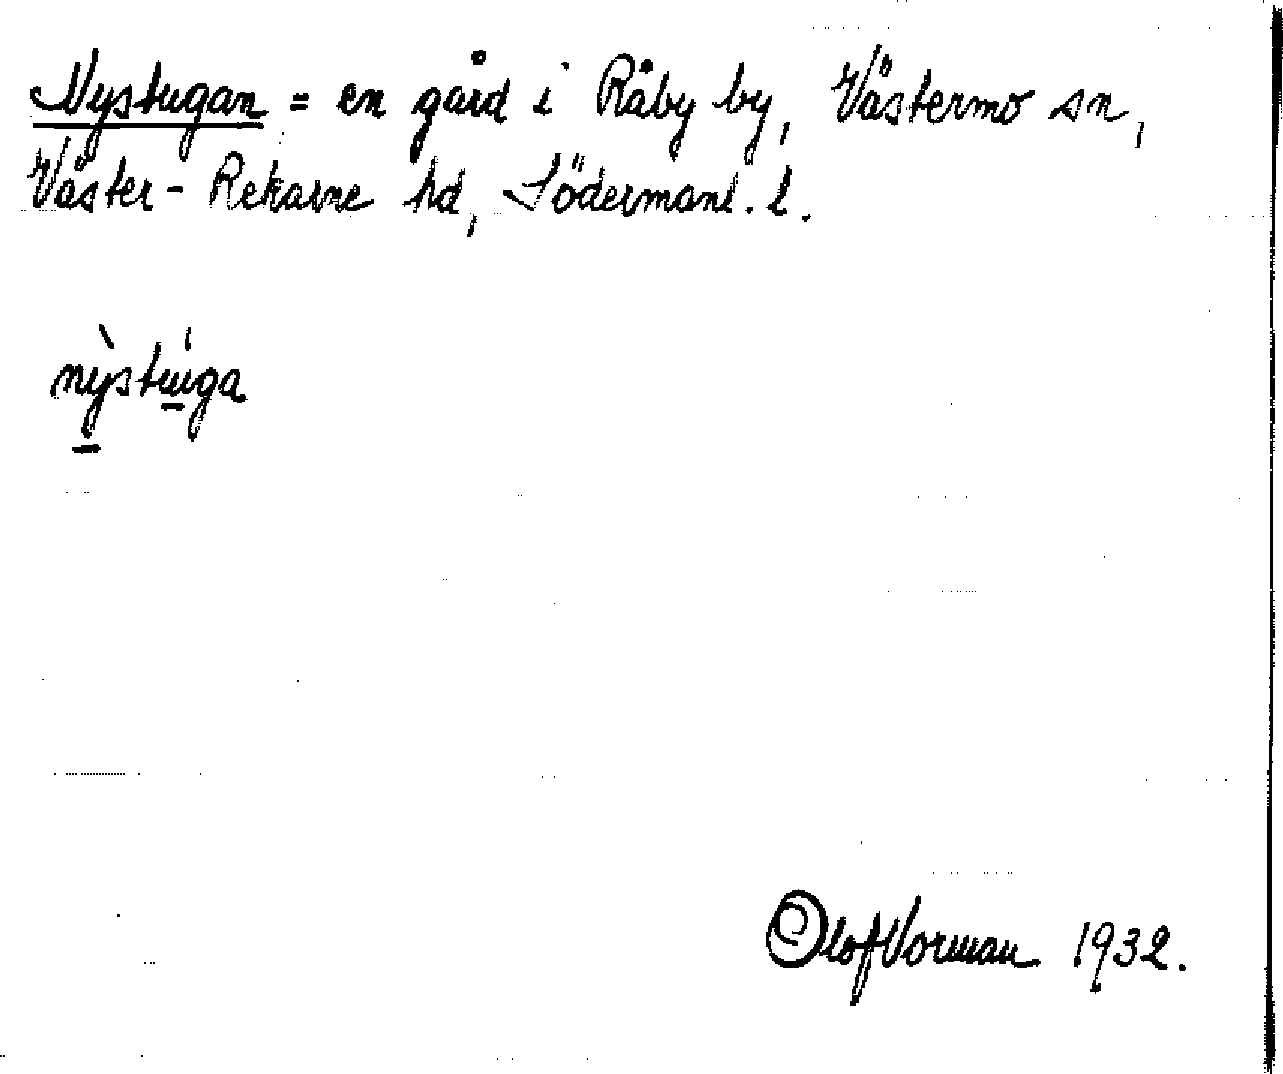 Nystugan = en gård i Råby by, Västermo sn,
Väster-Rekarne hd, Södermanl. l.
nỳstúga
Olof Vorman 1932.